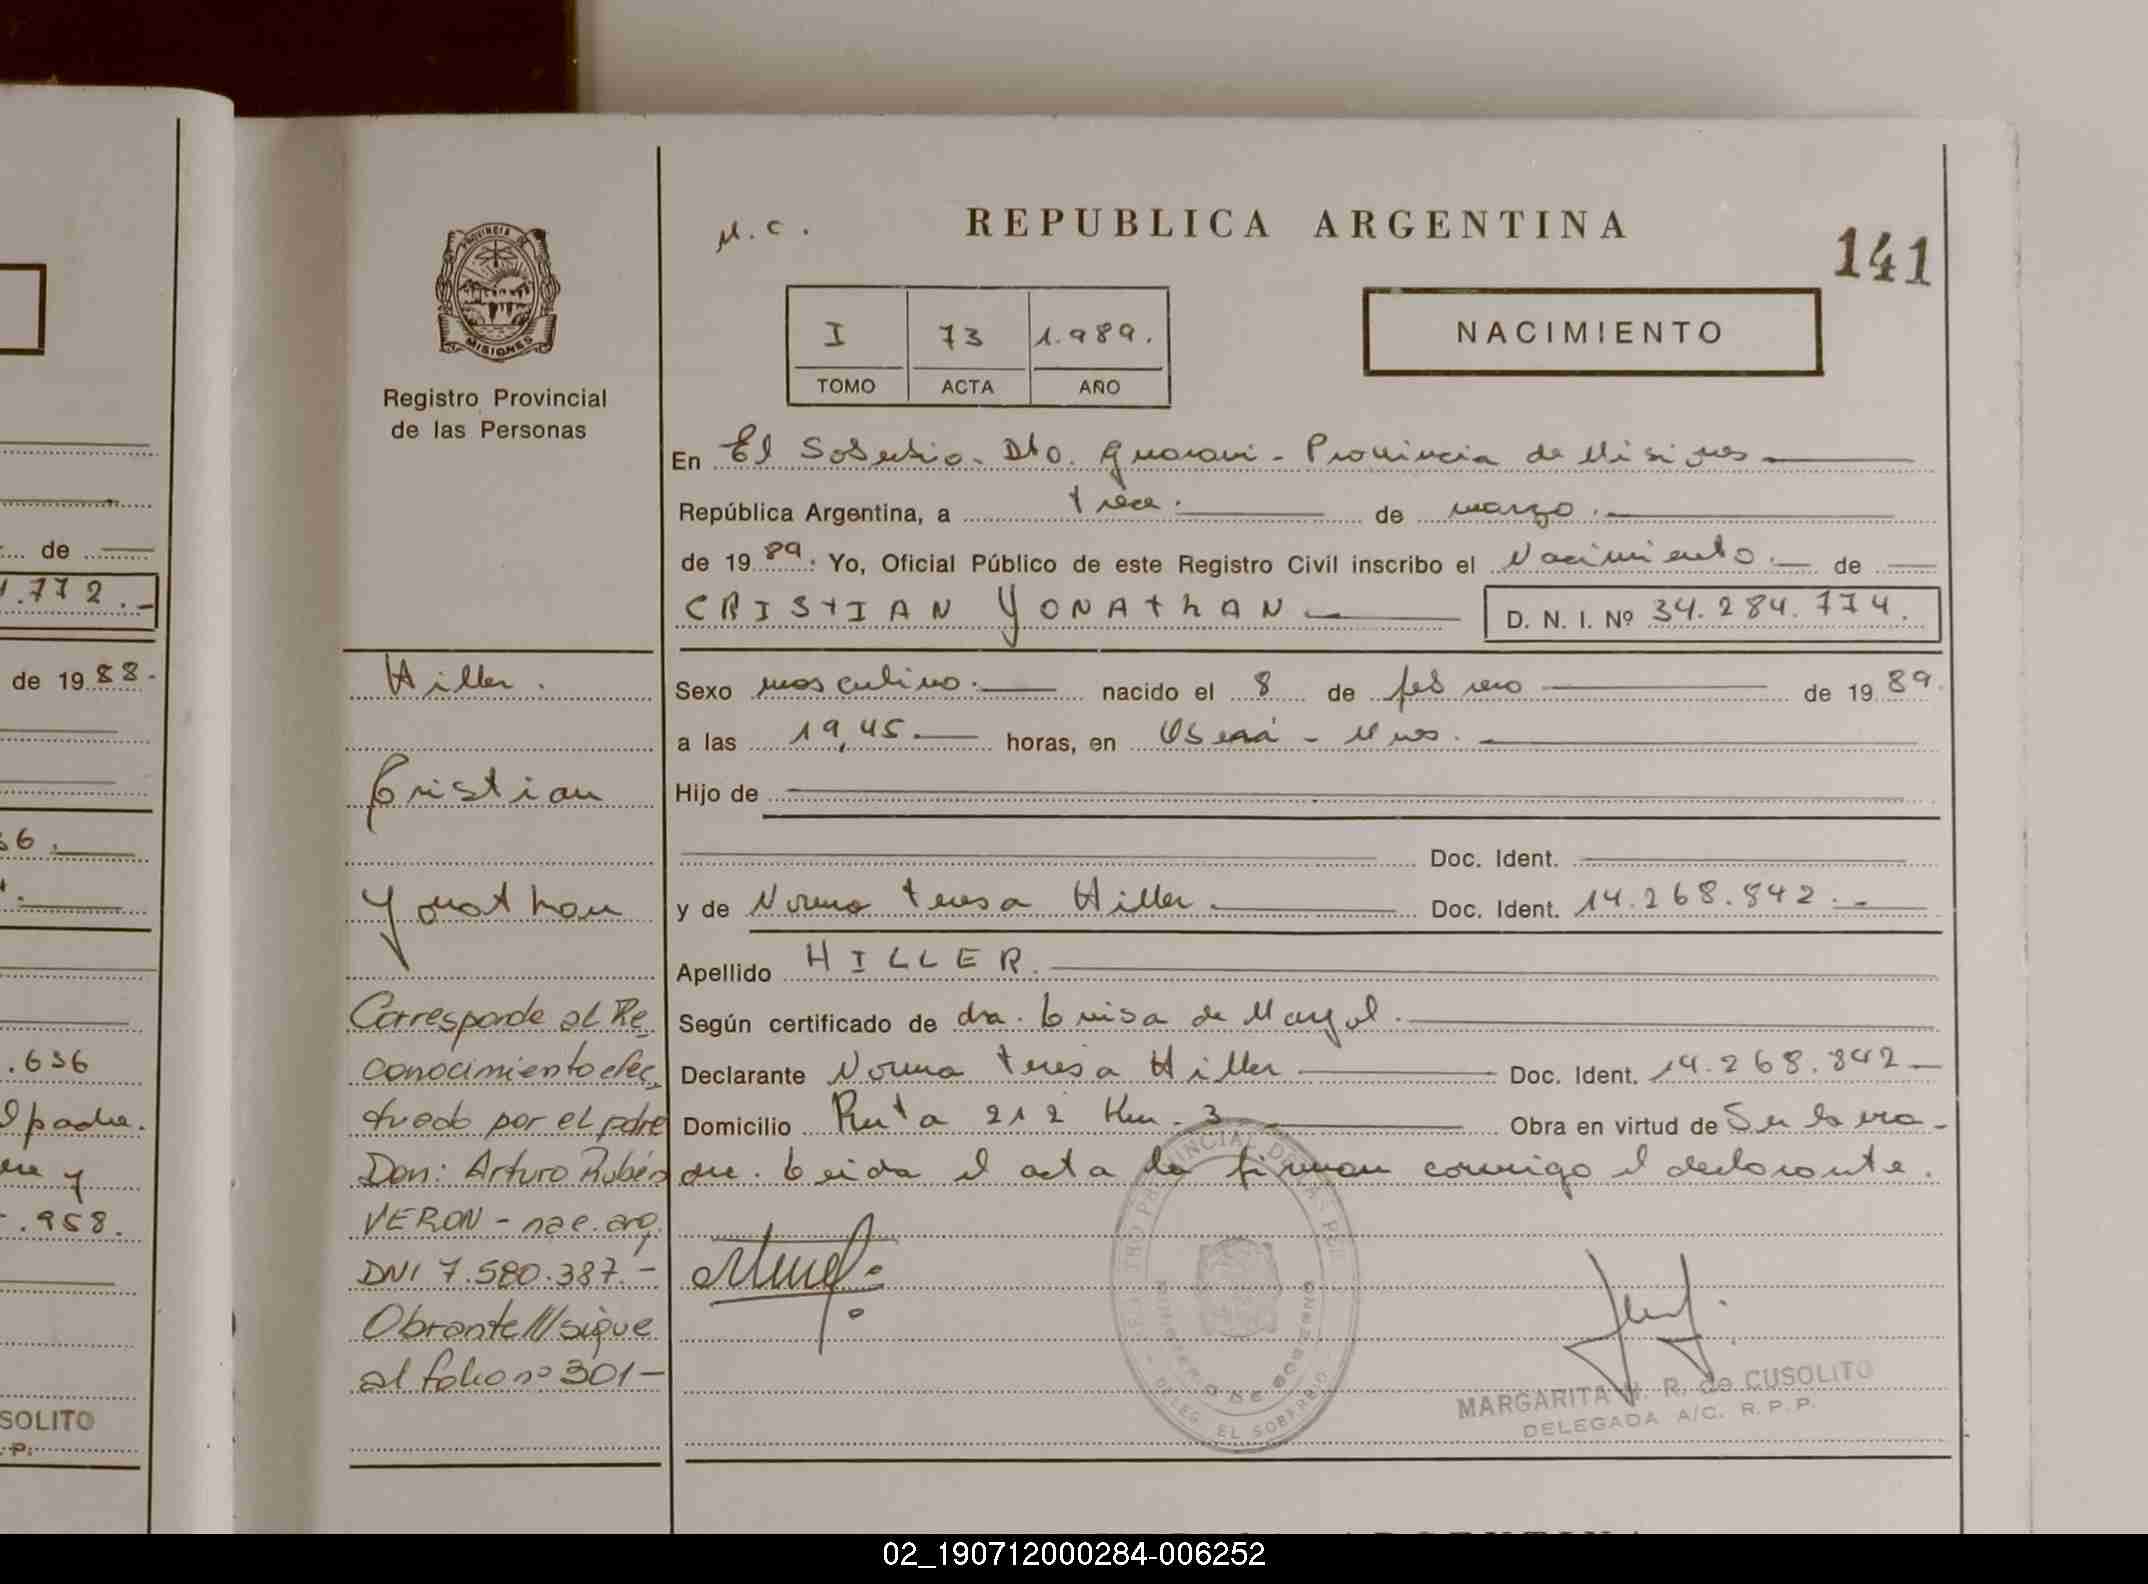 de
.772.-
de 1988.
56.
.636
l padre.
y
.958.
SOLITO
.P.
PROVINCIA DE
MISIONES
Registro Provincial
de las Personas
Hiller.
Cristian
Yonathan
Corresponde al Re
conocimiento efec,
tuado por el padre
Don: Arturo Rubén
VERON - nac. arg.
DNI 7.580.387.-
Obrante///sigue
al folio nº 301-
M.C.
REPUBLICA ARGENTINA
141
I 73 1.989.
TOMO ACTA AÑO
NACIMIENTO
En El Soberbio - Dto. Guarani - Provincia de Misiones
República Argentina, a trece. de marzo.
de 1989. Yo, Oficial Público de este Registro Civil inscribo el Nacimiento. de
CRIStIAN YONAthAN D. N. I. Nº 34.284.774.
Sexo masculino. nacido el 8 de febrero de 1989.
a las 19,45 horas, en Oberá - Mnes.
Hijo de
Doc. Ident.
y de Norma Teresa Hiller. Doc. Ident. 14.268.842.-
Apellido HILLER.
Según certificado de dra. Luisa de Mayol.
Declarante Norma Teresa Hiller Doc. Ident. 14.268.842
Domicilio Ruta 212 Km. 3 Obra en virtud de Ser la ma-
dre. Leida el acta la firman conmigo el declarante.
MINISTERIO DE GOBIERNO
DELEG. EL SOBERBIO
MARGARITA H. R. de CUSOLITO
DELEGADA A/C. R.P.P.
02_190712000284-006252